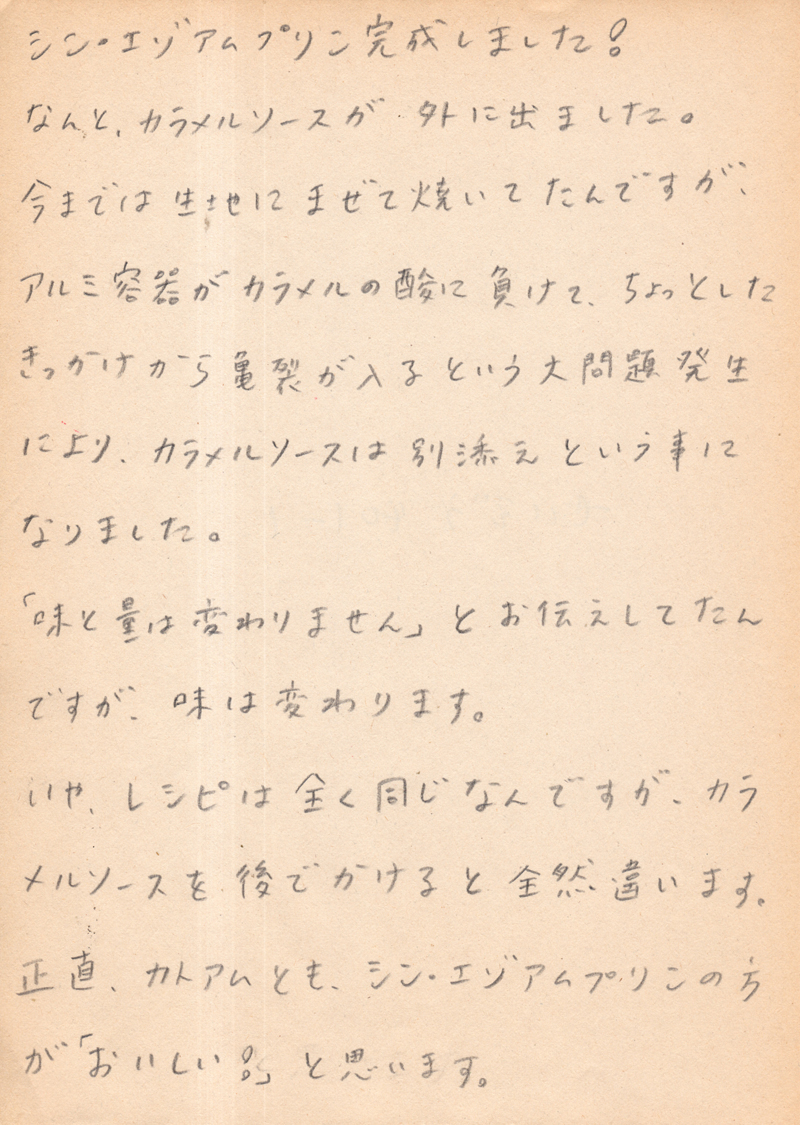 シン・エゾアムプリン完成しました!
なんと、カラメルソースが外に出ました。
今までは生地にまぜて焼いてたんですが、
アルミ容器がカラメルの酸に負けて、ちょっとした
きっかけから亀裂が入るという大問題発生
により、カラメルソースは別添えという事に
なりました。
「味と量は変わりません」とお伝えしてたん
ですが、味は変わります。
いや、レシピは全く同じなんですが、カラ
メルソースを後でかけると全然違います。
正直、カトアムとも、シン・エゾアムプリンの方
が「おいしい!」と思います。